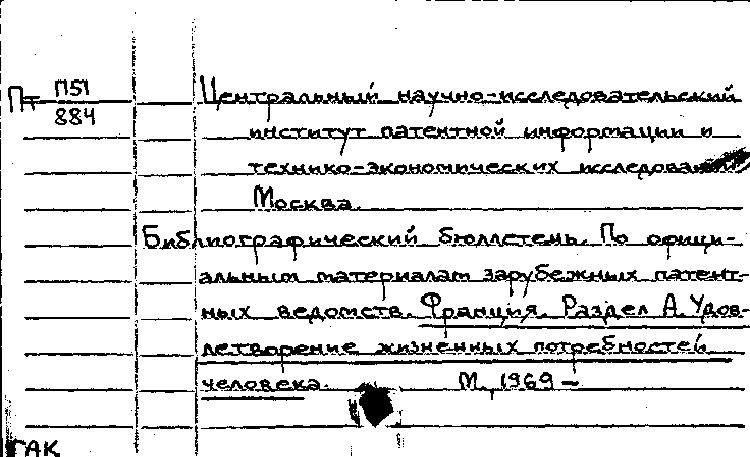 Пт П51
884
Центральный научно-исследовательский
институт патентной информации и
технико-экономических исследований
Москва.
Библиографический бюллетень. По офици-
альным материалам зарубежных патент-
ных ведомств. Франция. Раздел А. Удов-
летворение жизненных потребностей
человека. М., 1969 –
ГАК